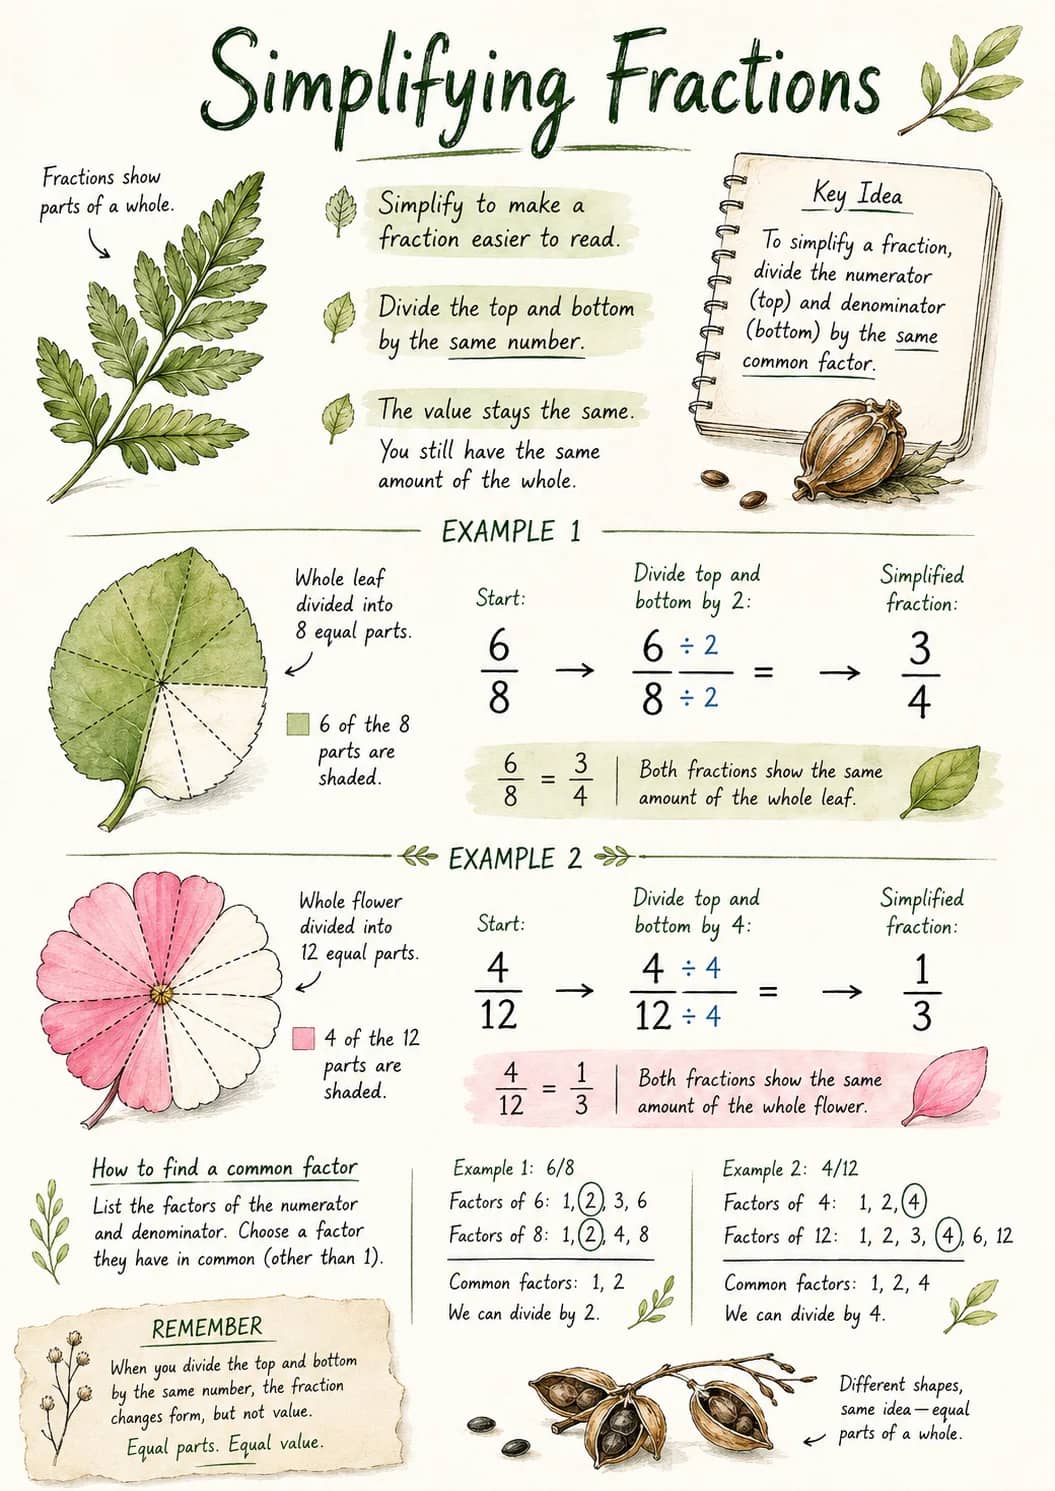 Simplifying Fractions
Fractions show
parts of a whole.
Simplify to make a
fraction easier to read.
Divide the top and bottom
by the same number.
The value stays the same.
You still have the same
amount of the whole.
Key Idea
To simplify a fraction,
divide the numerator
(top) and denominator
(bottom) by the same
common factor.
EXAMPLE 1
Whole leaf
divided into
8 equal parts.
6 of the 8
parts are
shaded.
Start:
6
8
→
Divide top and
bottom by 2:
6 ÷ 2
8 ÷ 2
=
→
Simplified
fraction:
3
4
6/8 = 3/4
Both fractions show the same
amount of the whole leaf.
EXAMPLE 2
Whole flower
divided into
12 equal parts.
4 of the 12
parts are
shaded.
Start:
4
12
→
Divide top and
bottom by 4:
4 ÷ 4
12 ÷ 4
=
→
Simplified
fraction:
1
3
4/12 = 1/3
Both fractions show the same
amount of the whole flower.
How to find a common factor
List the factors of the numerator
and denominator. Choose a factor
they have in common (other than 1).
Example 1: 6/8
Factors of 6: 1, 2, 3, 6
Factors of 8: 1, 2, 4, 8
Common factors: 1, 2
We can divide by 2.
Example 2: 4/12
Factors of 4: 1, 2, 4
Factors of 12: 1, 2, 3, 4, 6, 12
Common factors: 1, 2, 4
We can divide by 4.
REMEMBER
When you divide the top and bottom
by the same number, the fraction
changes form, but not value.
Equal parts. Equal value.
Different shapes,
same idea—equal
parts of a whole.